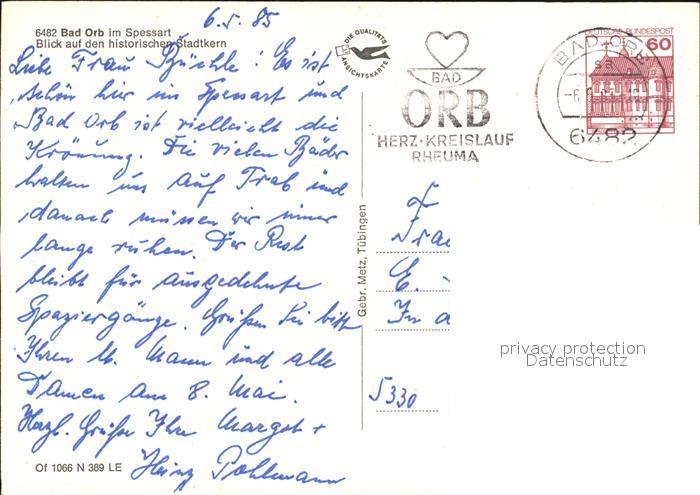 6.5.85
6482 Bad Orb im Spessart
Blick auf den historischen Stadtkern
Liebe Frau Büchle! Es ist
schön hier im Spessart und
Bad Orb ist vielleicht die
Krönung. Die vielen Bäder
halten uns auf Trab und
danach müssen wir immer
lange ruhen. Der Rest
bleibt für ausgedehnte
Spaziergänge. Grüßen Sie bitte
Ihren lb. Mann und alle
Damen am 8. Mai.
Herzl. Grüße Ihre Margot +
Heinz Pohlmann
Of 1066 N 389 LE
DIE QUALITÄTS
ANSICHTSKARTE
Gebr. Metz, Tübingen
BAD
ORB
HERZ·KREISLAUF
RHEUMA
DEUTSCHE BUNDESPOST
60
BAD ORB
6482
Frau
E.
5330
privacy protection
Datenschutz